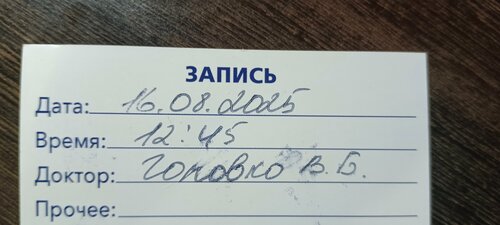 ЗАПИСЬ
Дата: 16.08.2025
Время: 12:45
Доктор: Головко В.Б.
Прочее: